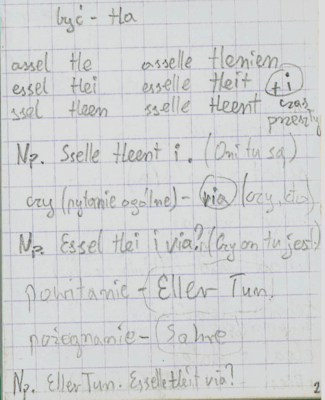 być - tla
assel tle asselle tlenien
essel tlei esselle tleit ti
ssel tleen sselle tleent czas
przeszły
Np. Sselle tleent i. (Oni tu są)
czy (pytanie ogólne) - via (czy, do)
Np. Essel tlei i via? (Czy on tu jest)
powitanie - Eller Tun.
pożegnanie - Salve
Np. Eller Tun. Esselle tleit via?
2